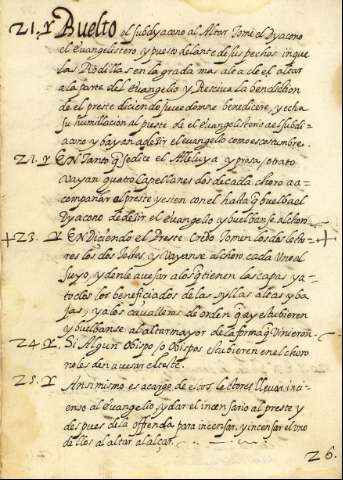 21. Y Buelto el subdyacono al Altar Tome el Dyacono
el Evangelistero, y puesto delante de sus pechos inque
las Rodillas en la grada mas alta de el altar
a la parte del Evangelio y Resciva la bendision
de el preste diciendo jube domne benedicere, y echa
su humillacion al preste de el Evangelisterio a el subdi-
acono y vayan a dezir el evangelio como es costumbre.
21. Y EN Tanto q se dice el Alleluya y prosa, o trato
vayan quatro Capellanes dos de cada choro a a-
compañar el preste y esten con el hasta q buelba el
Dyacono de dezir el Evangelio y buelbanse al choro
23. Y EN Diciendo el Preste Credo Tomen los dos lecto-
res los dos y vayanse al choro cada Uno al
suyo, y denle a vesar a los q tienen las capas y a-
todos los beneficiados de las syllas altas y ba
jas, y a los cavalleros de orden q ay estubieren
y buelbanse al altar mayor de la forma q Vinieron.
24. Y Si Algun Obispo, o Obispos estubieren en el choro
no les den a vesar el teste.
25. Y Ansimismo es a cargo de estos lectores llevar in-
censo al Evangelio y dar el incensario al preste y
despues de la offrenda para incensar, y incensar el uno
de ellos al altar al alçar.
26.